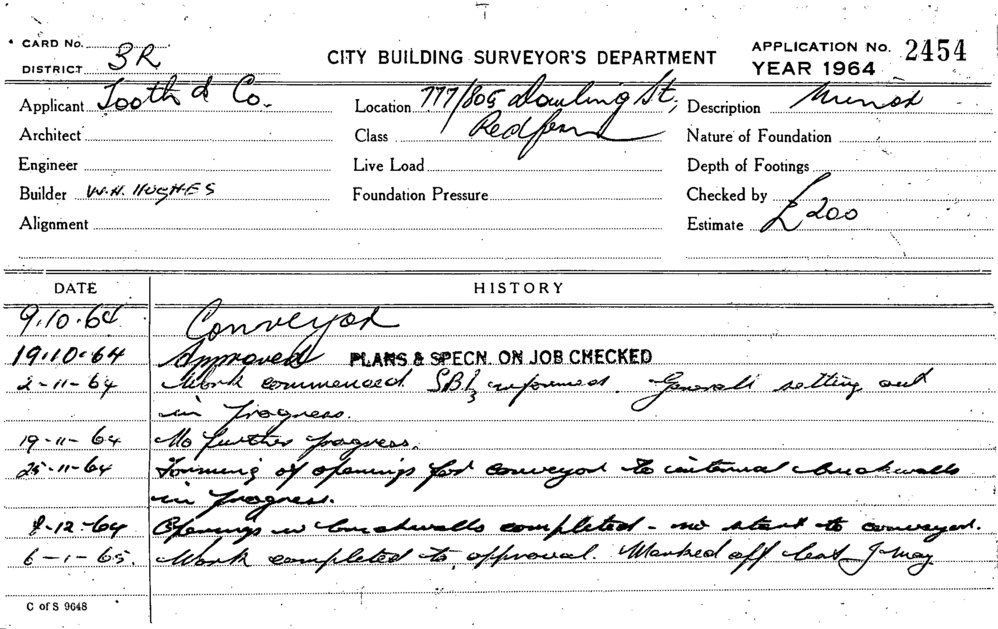 CARD No.
DISTRICT 3R
CITY BUILDING SURVEYOR'S DEPARTMENT
APPLICATION No. 2454
YEAR 1964
Applicant Tooth & Co.
Location 777/805 Dowling St,
Description Minor
Architect
Class Redfern
Nature of Foundation
Engineer
Live Load
Depth of Footings
Builder W.H. HUGHES
Foundation Pressure
Checked by
Alignment
Estimate £200
DATE HISTORY
9.10.64 Conveyor
19.10.64 Approved PLANS & SPECN. ON JOB CHECKED
2-11-64 Work commenced. informed. General setting out
in progress.
19-11-64 No further progress.
25-11-64 Forming of openings for conveyor to internal brickwalls
in progress.
8-12-64 Openings in brickwalls completed - no start to conveyor.
6-1-65. Work completed to approval. Marked off
C of S 9648